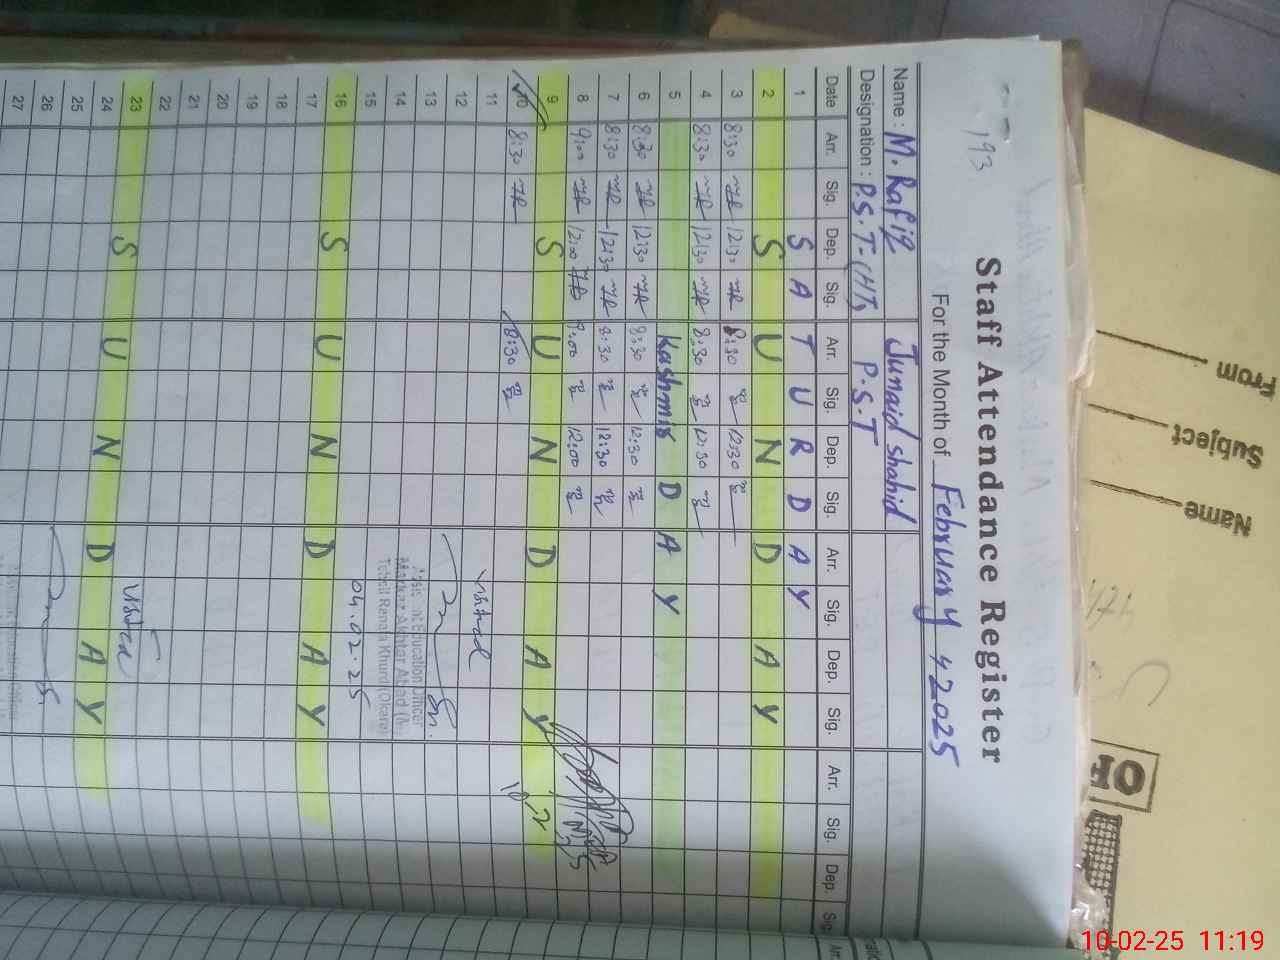 193
Staff Attendance Register
For the Month of February 2025
Name: M. Rafiq Junaid Shahid
Designation: P.S.T-(HT) P.S.T
Date Arr. Sig. Dep. Sig. Arr. Sig. Dep. Sig. Arr. Sig. Dep. Sig. Arr. Sig. Dep. Sig.
1 SATURDAY
2 SUNDAY
3 8:30 12:30 8:30 12:30
4 8:30 12:30 8:30 12:30
5 Kashmir DAY
6 8:30 12:30 8:30 12:30
7 8:30 12:30 8:30 12:30
8 9:00 12:00 9:00 12:00
9 SUNDAY
10 8:30 8:30 10-2
11 visited
12
13
14
15 04.02.25
16 SUNDAY
17
18
19
20
21
22
23 SUNDAY visited
24
25
26
27
Assistant Education Officer
Markaz Akhtar Abad (M)
Tehsil Renala Khurd (Okara)
From
Subject
Name
OF
10-02-25 11:19